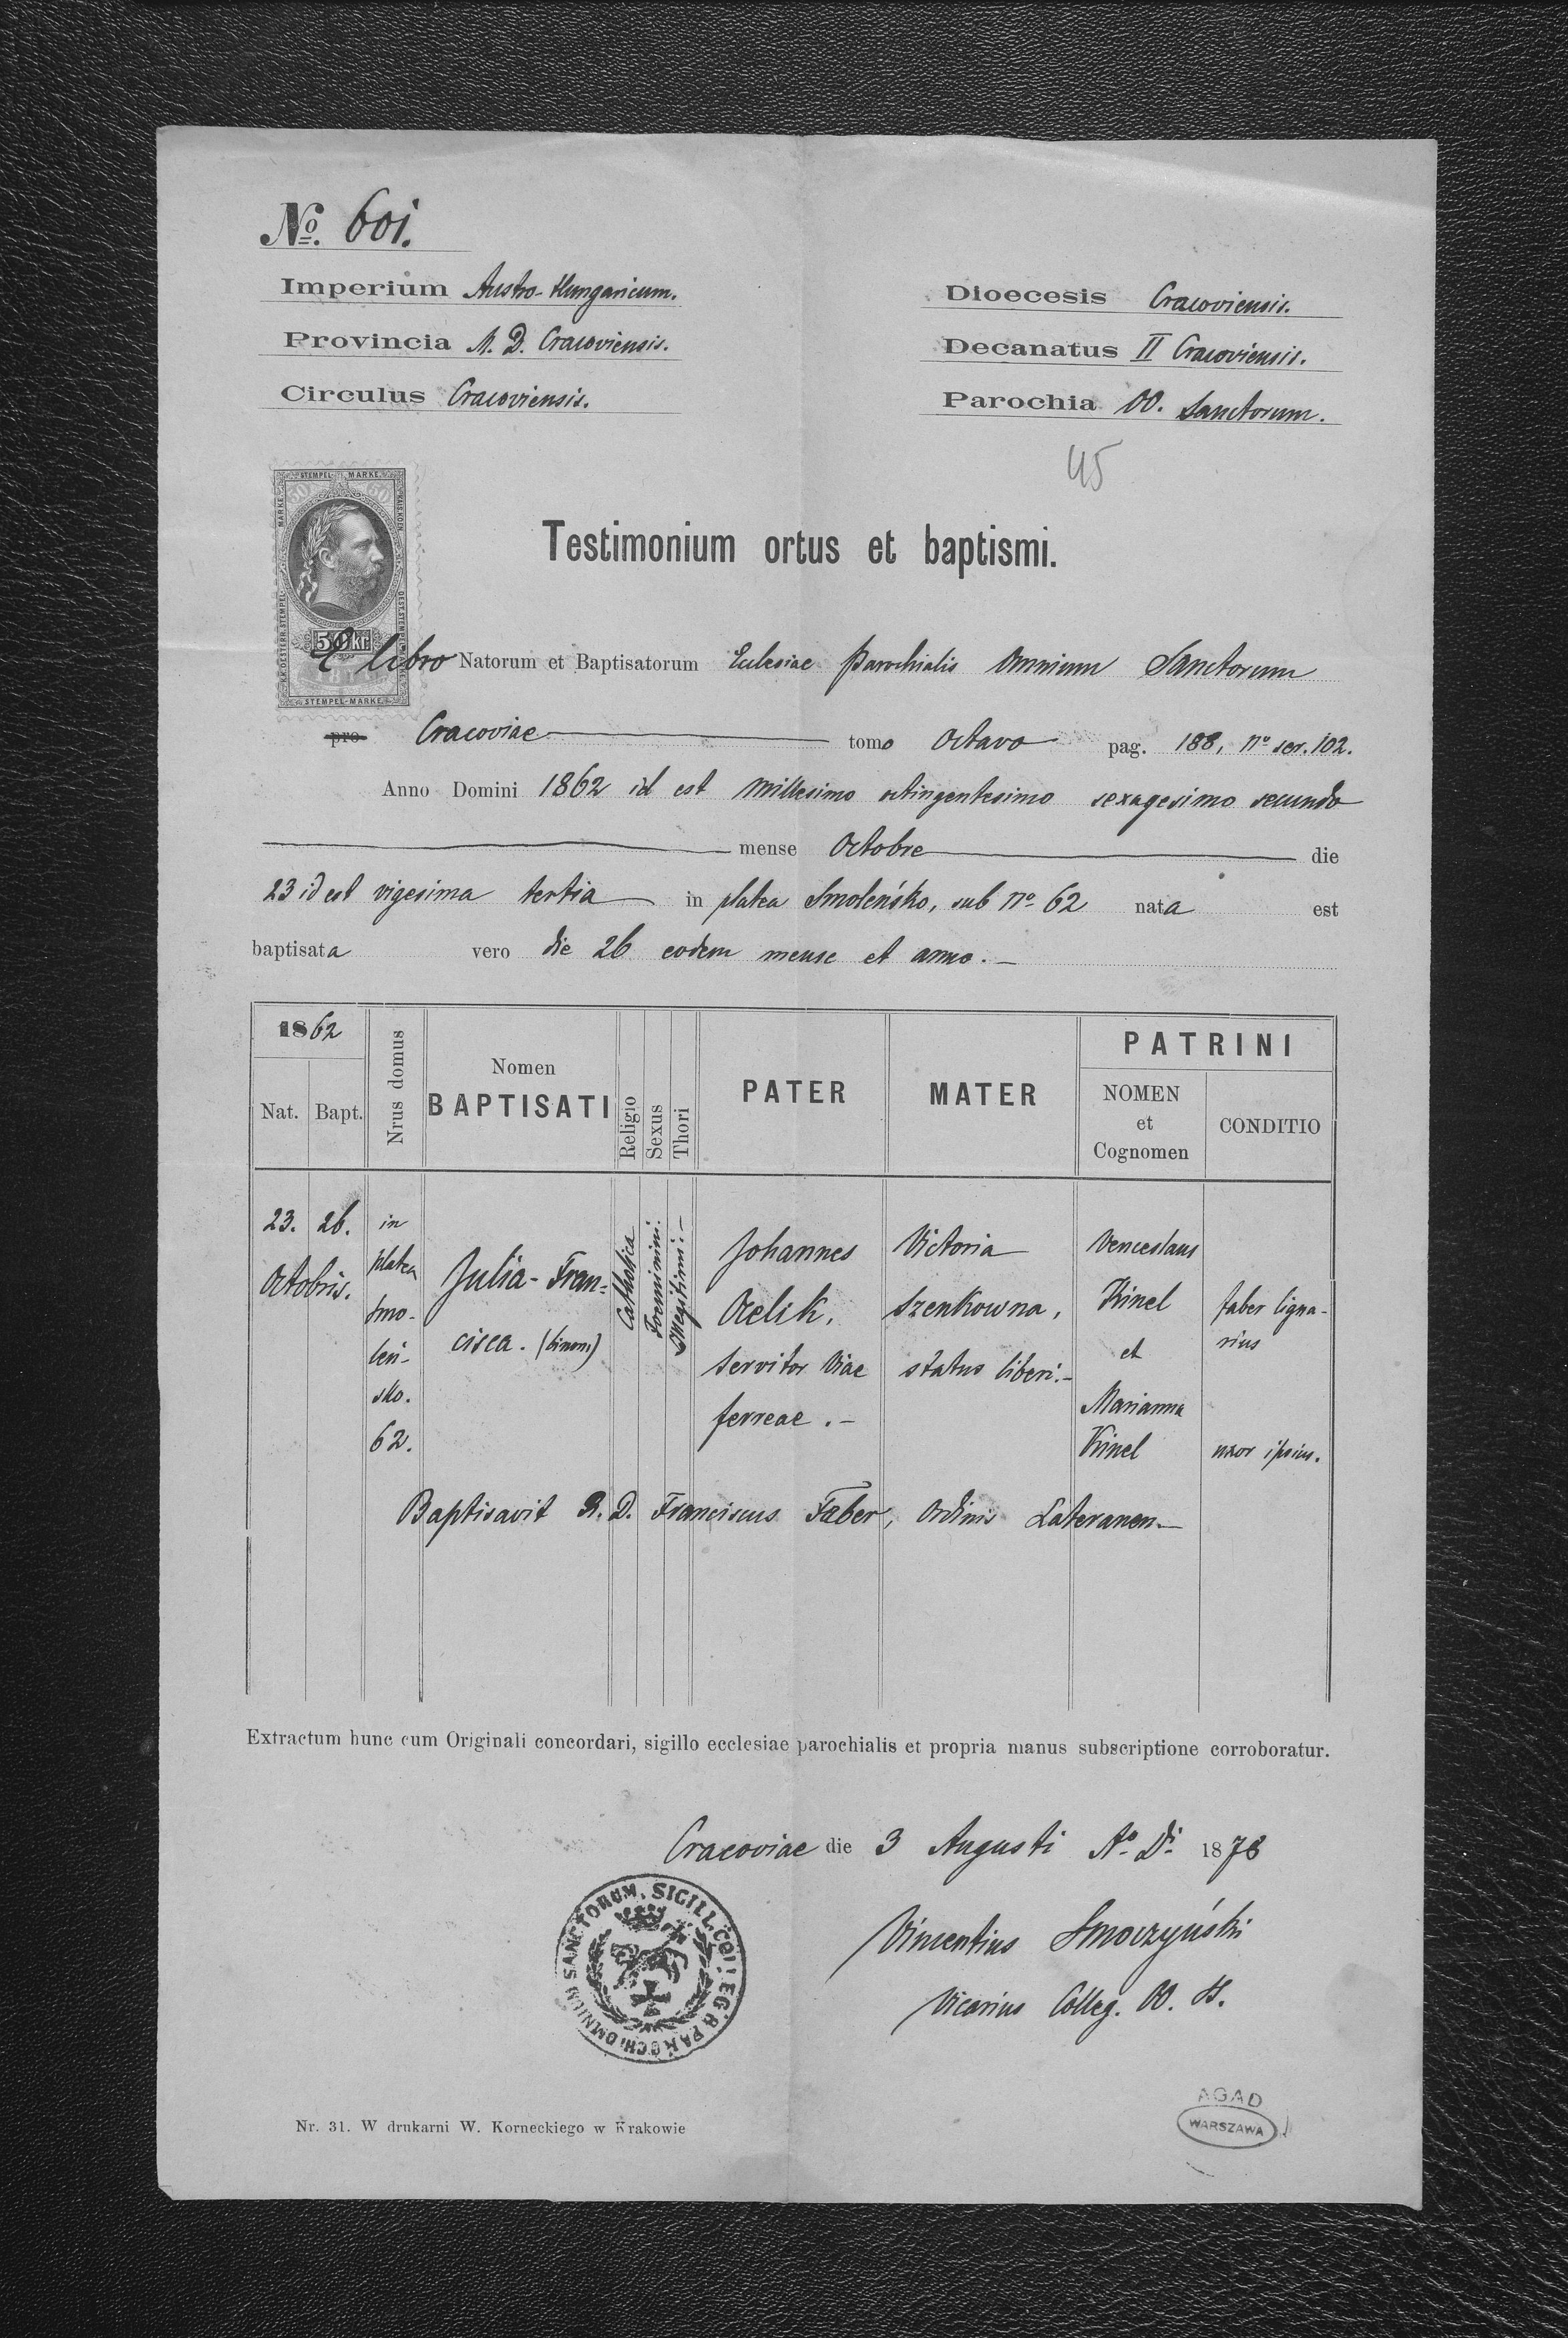 No. 601.
Imperium Austro-Hungaricum.
Provincia M. D. Cracoviensis.
Circulus Cracoviensis.
Dioecesis Cracoviensis.
Decanatus II Cracoviensis.
Parochia OO. Sanctorum.
45
STEMPEL MARKE
50 kr
STEMPEL-MARKE
Testimonium ortus et baptismi.
E libro Natorum et Baptisatorum Eclesiae Parochialis Omnium Sanctorum
pro Cracoviae tomo Octavo pag. 188, no ser. 102.
Anno Domini 1862 id est Millesimo octingentesimo sexagesimo secundo
mense Octobre die
23 id est vigesima tertia in platea Smoleńsko, sub No 62 nata est
baptisata vero die 26 eodem mense et anno.
1862
Nat. Bapt.
Nrus domus
Nomen
BAPTISATI
Religio
Sexus
Thori
PATER
MATER
PATRINI
NOMEN
et
Cognomen
CONDITIO
23. 26.
Octobris.
in
platea
Smo-
leń-
sko.
62.
Julia-Fran=
cisca. (binom)
Catholica
Foeminini.
Illegitimi:
Johannes
Oelik,
servitor viae
ferreae.
Victoria
Szenkowna,
status liberi.
Venceslaus
Kinel
et
Marianna
Kinel
faber ligna-
rius
uxor ipsius.
Baptisavit R. D. Franciscus Faber, Ordinis Lateranen.
Extractum hunc cum Originali concordari, sigillo ecclesiae parochialis et propria manus subscriptione corroboratur.
Cracoviae die 3 Augusti Ao Di 1878
Vincentius Smoczyński
Vicarius Colleg. OO. SS.
SIGILL. COLLEG. & PAROCHI OMNIUM SANCTORUM
Nr. 31. W drukarni W. Korneckiego w Krakowie
AGAD
WARSZAWA